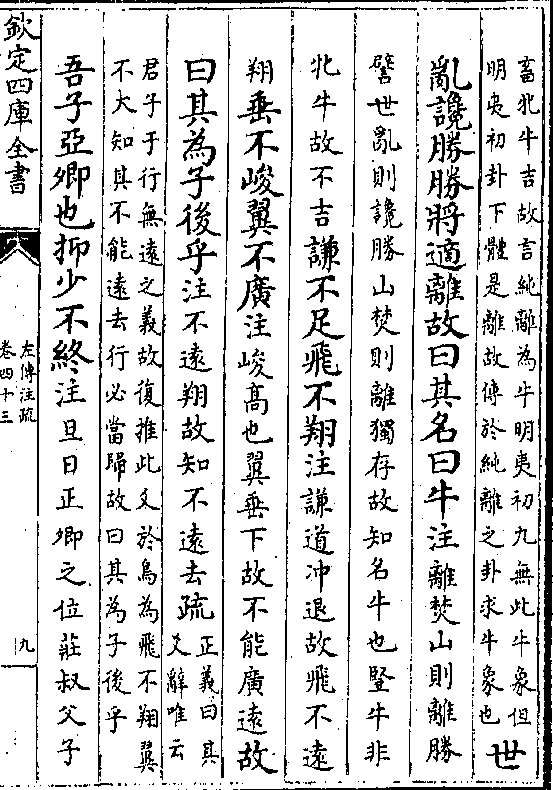 畜牝牛吉故言純離為牛明夷初九無此牛象但
明夷初卦下體是離故傳於純離之卦求牛象也
世
亂讒勝勝將適離故曰其名曰牛注離焚山則離勝
譬世亂則讒勝山焚則離獨存故知名牛也豎牛非
牝牛故不吉謙不足飛不翔注謙道冲退故飛不遠
翔垂不峻翼不廣注峻高也翼垂下故不能廣遠故
曰其為子後乎注不遠翔故知不遠去疏
正義曰其
爻辭唯云
君子于行無遠之義故復推此爻於鳥為飛不翔翼
不大知其不能遠去行必當歸故曰其為子後乎
吾子亞卿也抑少不終注旦日正卿之位莊叔父子
欽定四庫全書
左傳注疏
卷四十三
九